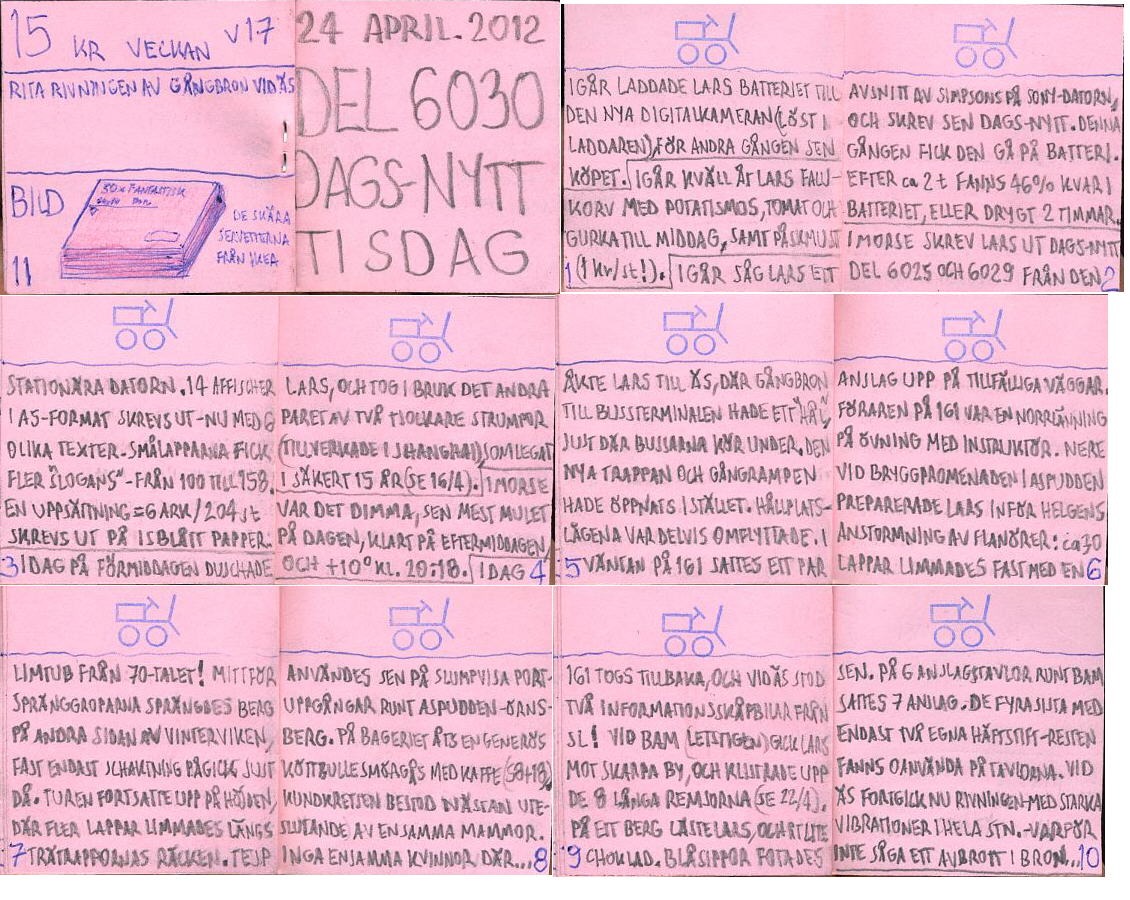 15 KR VECKAN V17
RITA RIVNINGEN AV GÅNGBRON VID ÄS
BILD
50X FANTASTISK
DE SKÄRA
SERVETTERNA
FRÅN IKEA
11
24 APRIL. 2012
DEL 6030
DAGS-NYTT
TISDAG
IGÅR LADDADE LARS BATTERIET TILL
DEN NYA DIGITALKAMERAN (LÖST I
LADDAREN), FÖR ANDRA GÅNGEN SEN
KÖPET. IGÅR KVÄLL ÅT LARS FALU-
KORV MED POTATISMOS, TOMAT OCH
GURKA TILL MIDDAG, SAMT PÅSKMUST
(1 kr/st!). IGÅR SÅG LARS ETT
1
AVSNITT AV SIMPSONS PÅ SONY-DATORN,
OCH SKREV SEN DAGS-NYTT. DENNA
GÅNGEN FICK DEN GÅ PÅ BATTERI.
EFTER ca 2 t FANNS 46% KVAR I
BATTERIET, ELLER DRYGT 2 TIMMAR.
IMORSE SKREV LARS UT DAGS-NYTT
DEL 6025 OCH 6029 FRÅN DEN
2
STATIONÄRA DATORN. 14 AFFISCHER
I A5-FORMAT SKREVS UT-NU MED 6
OLIKA TEXTER. SMÅLAPPARNA FICK
FLER "SLOGANS"-FRÅN 100 TILL 958.
EN UPPSÄTTNING = 6 ARK/204 st
SKREVS UT PÅ ISBLÅTT PAPPER.
IDAG PÅ FÖRMIDDAGEN DUSCHADE
3
LARS, OCH TOG I BRUK DET ANDRA
PARET AV TVÅ TJOCKARE STRUMPOR
(TILLVERKADE I SHANGHAI) SOM LEGAT
I SÄKERT 15 ÅR (SE 16/4). IMORSE
VAR DET DIMMA, SEN MEST MULET
PÅ DAGEN, KLART PÅ EFTERMIDDAGEN
OCH +10° KL. 20:18. IDAG
4
ÅKTE LARS TILL ÄS, DÄR GÅNGBRON
TILL BUSSTERMINALEN HADE ETT "HÅL"
JUST DÄR BUSSARNA KÖR UNDER. DEN
NYA TRAPPAN OCH GÅNGRAMPEN
HADE ÖPPNATS ISTÄLLET. HÅLLPLATS-
LÄGENA VAR DELVIS OMFLYTTADE. I
VÄNTAN PÅ 161 SATTES ETT PAR
5
ANSLAG UPP PÅ TILLFÄLLIGA VÄGGAR.
FÖRAREN PÅ 161 VAR EN NORRLÄNNING
PÅ ÖVNING MED INSTRUKTÖR. NERE
VID BRYGGPROMENADEN I ASPUDDEN
PREPARERADE LARS INFÖR HELGENS
ANSTORMNING AV FLANÖRER: ca 30
LAPPAR LIMMADES FAST MED EN
6
LIMTUB FRÅN 70-TALET! MITTFÖR
SPRÄNGGROPARNA SPRÄNGDES BERG
PÅ ANDRA SIDAN AV VINTERVIKEN,
FAST ENDAST SCHAKTNING PÅGICK JUST
DÅ. TUREN FORTSATTE UPP PÅ HÖJDEN,
DÄR FLER LAPPAR LIMMADES LÄNGS
TRÄTRAPPORNAS RÄCKEN. TEJP
7
ANVÄNDES SEN PÅ SLUMPVISA PORT-
UPPGÅNGAR RUNT ASPUDDEN-ÖRNS-
BERG. PÅ BAGERIET ÅTS EN GENERÖS
KÖTTBULLESMÖRGÅS MED KAFFE (58+18)
KUNDKRETSEN BESTOD NÄSTAN UTE-
SLUTANDE AV ENSAMMA MAMMOR.
INGA ENSAMMA KVINNOR DÄR...
8
161 TOGS TILLBAKA, OCH VID ÄS STOD
TVÅ INFORMATIONSSKÅPBILAR FRÅN
SL! VID BAM (LETSTIGEN) GICK LARS
MOT SKARPA BY, OCH KLISTRADE UPP
DE 8 LÅNGA REMSORNA (SE 22/4).
PÅ ETT BERG LÄSTE LARS, OCH ÅT LITE
CHOKLAD. BLÅSIPPOR FOTADES
9
SEN. PÅ 6 ANSLAGSTAVLOR RUNT BAM
SATTES 7 ANSLAG. DE FYRA SISTA MED
ENDAST TVÅ EGNA HÄFTSTIFT-RESTEN
FANNS OANVÄNDA PÅ TAVLORNA. VID
ÄS FORTGICK NU RIVNINGEN-MED STARKA
VIBRATIONER I HELA STN. -VARFÖR
INTE SÅGA ETT AVBROTT I BRON...
10